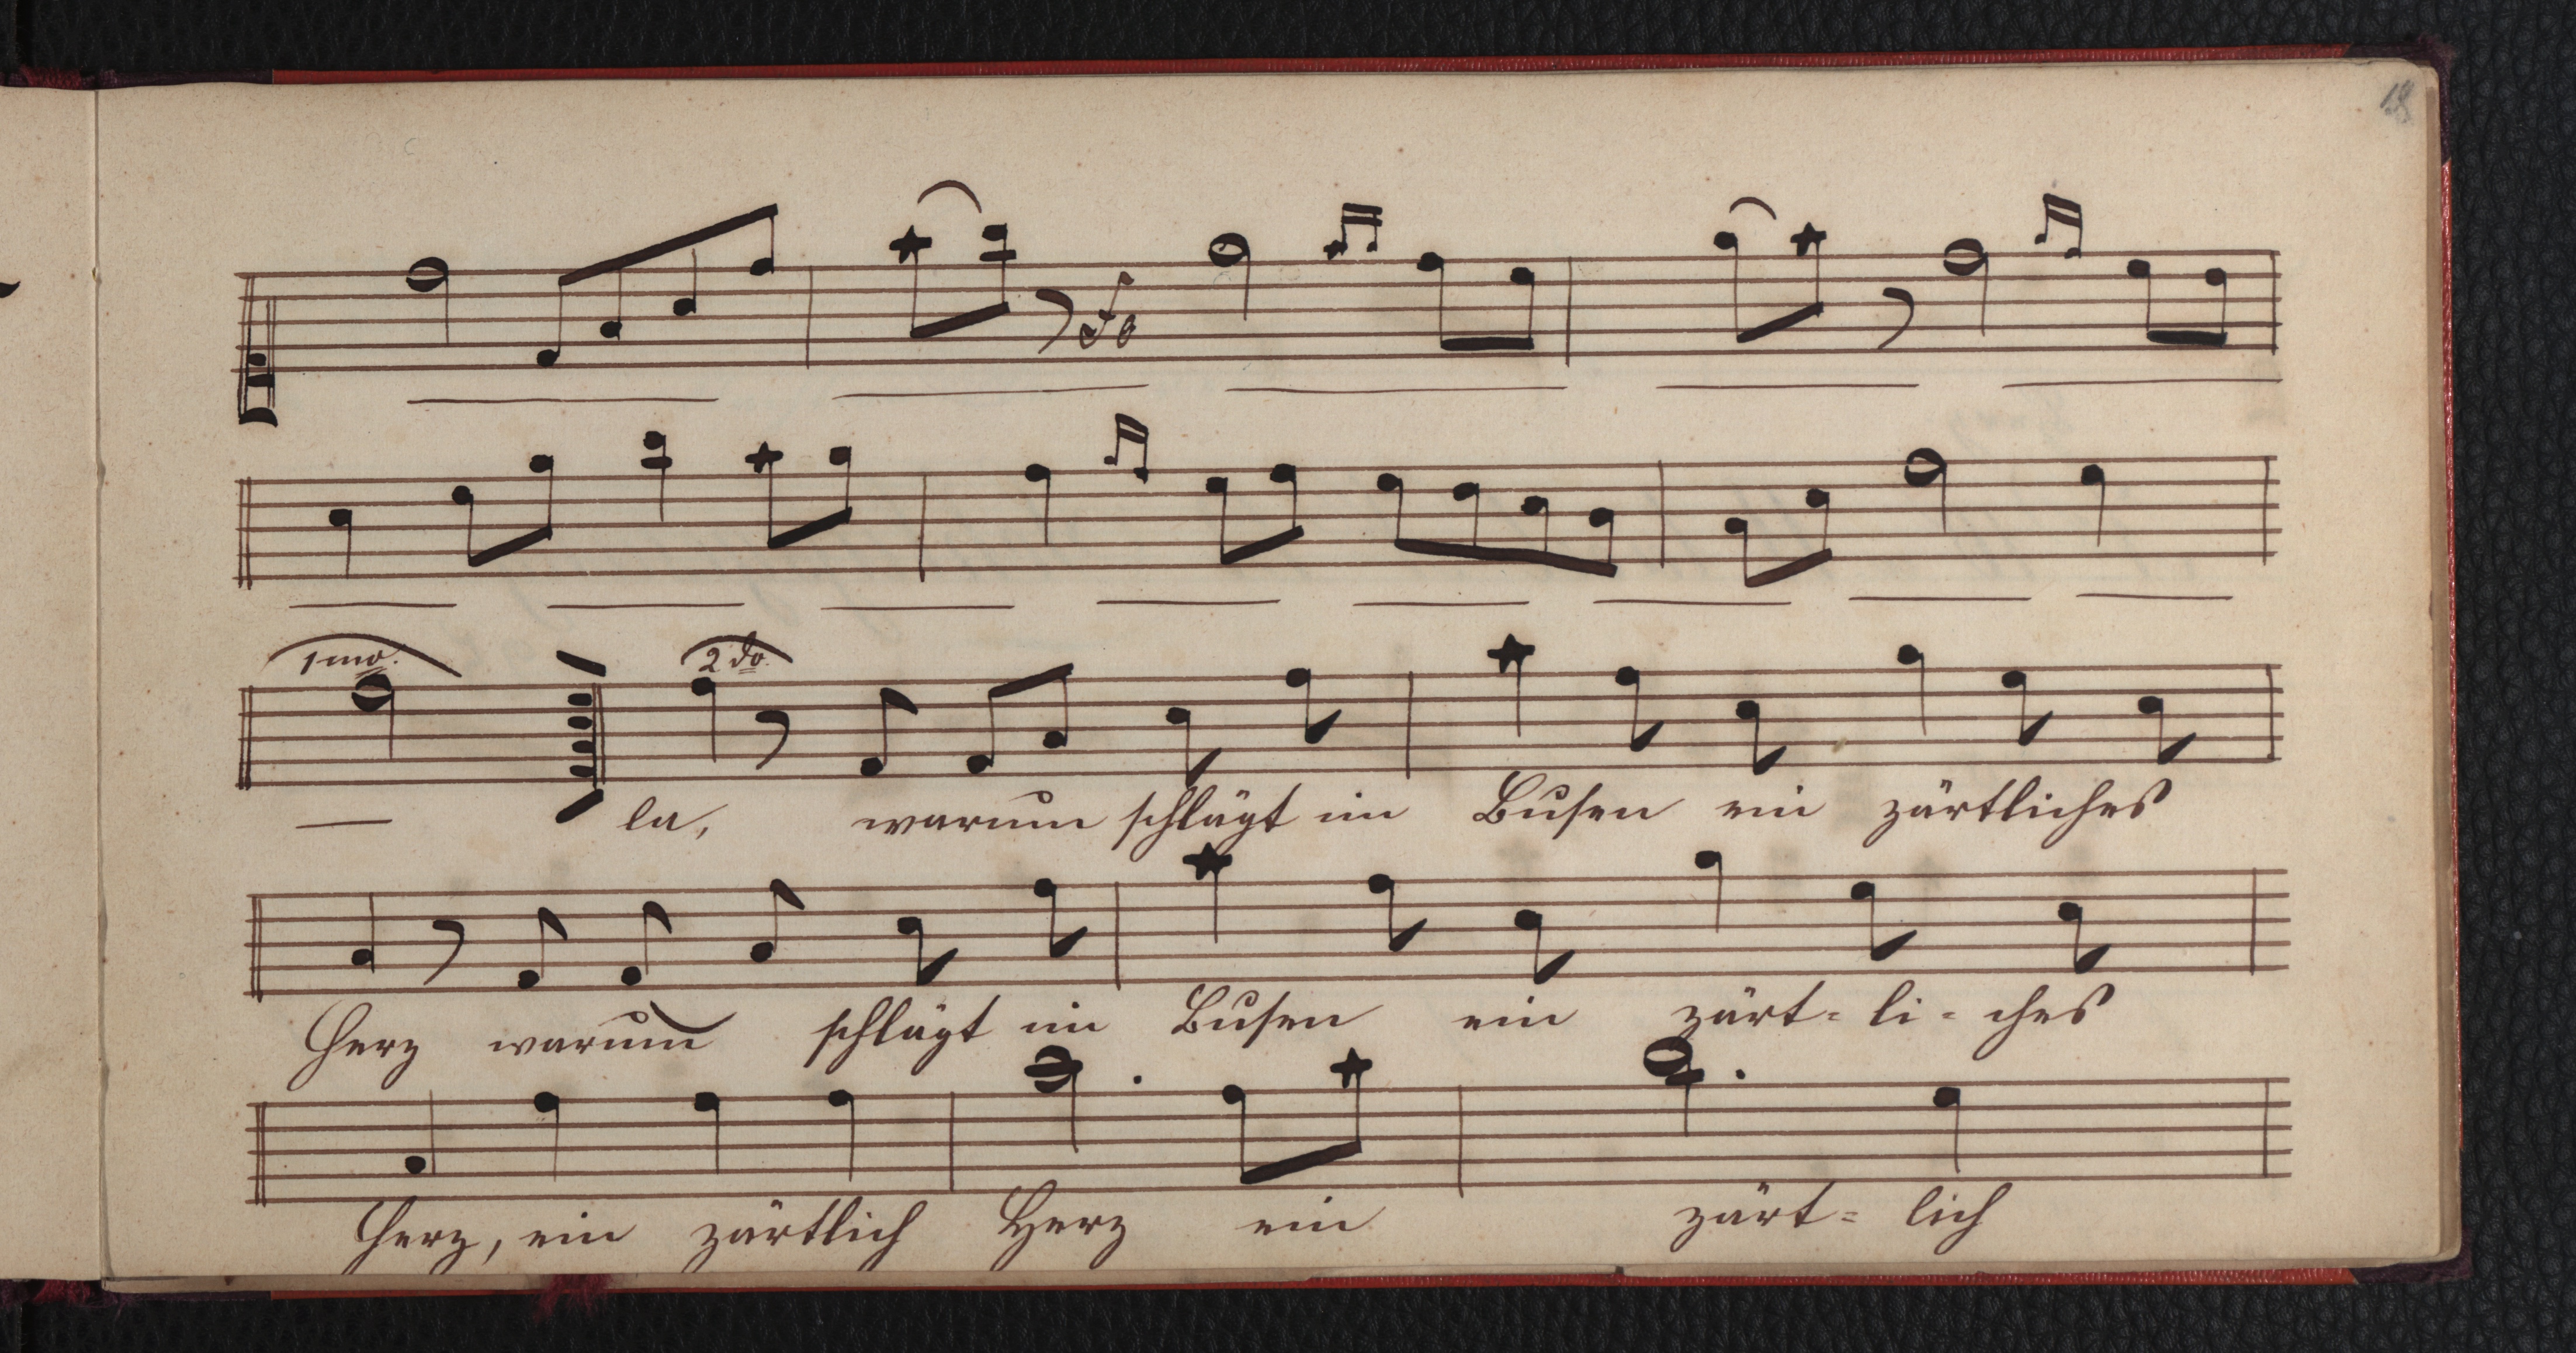 18
fo
1mo. 2do.
la, warum schlägt im Busen ein zärtliches
Herz warum schlägt im Busen ein zärt= li= ches
Herz, ein zärtlich Herz ein zärt= lich